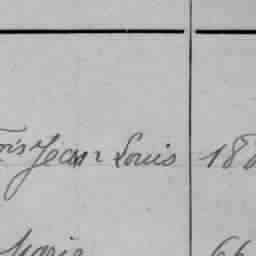 ois Jean Louis 18
Marie 66